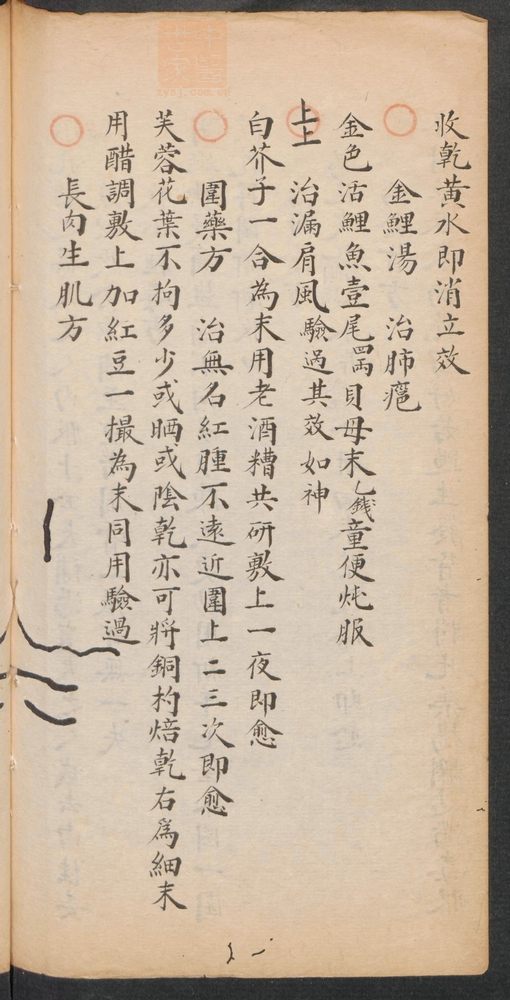 收乾黃水即消立效
金鯉湯 治肺癰
金色活鯉魚壹尾 貝母末乙錢童便炖服
上上 治漏肩風驗過其效如神
白芥子一合為末用老酒糟共研敷上一夜即愈
圍藥方 治無名紅腫不遠近圍上二三次即愈
芙蓉花葉不拘多少或晒或陰乾亦可將銅杓焙乾右爲細末
用醋調敷上加紅豆一撮為末同用驗過
長肉生肌方